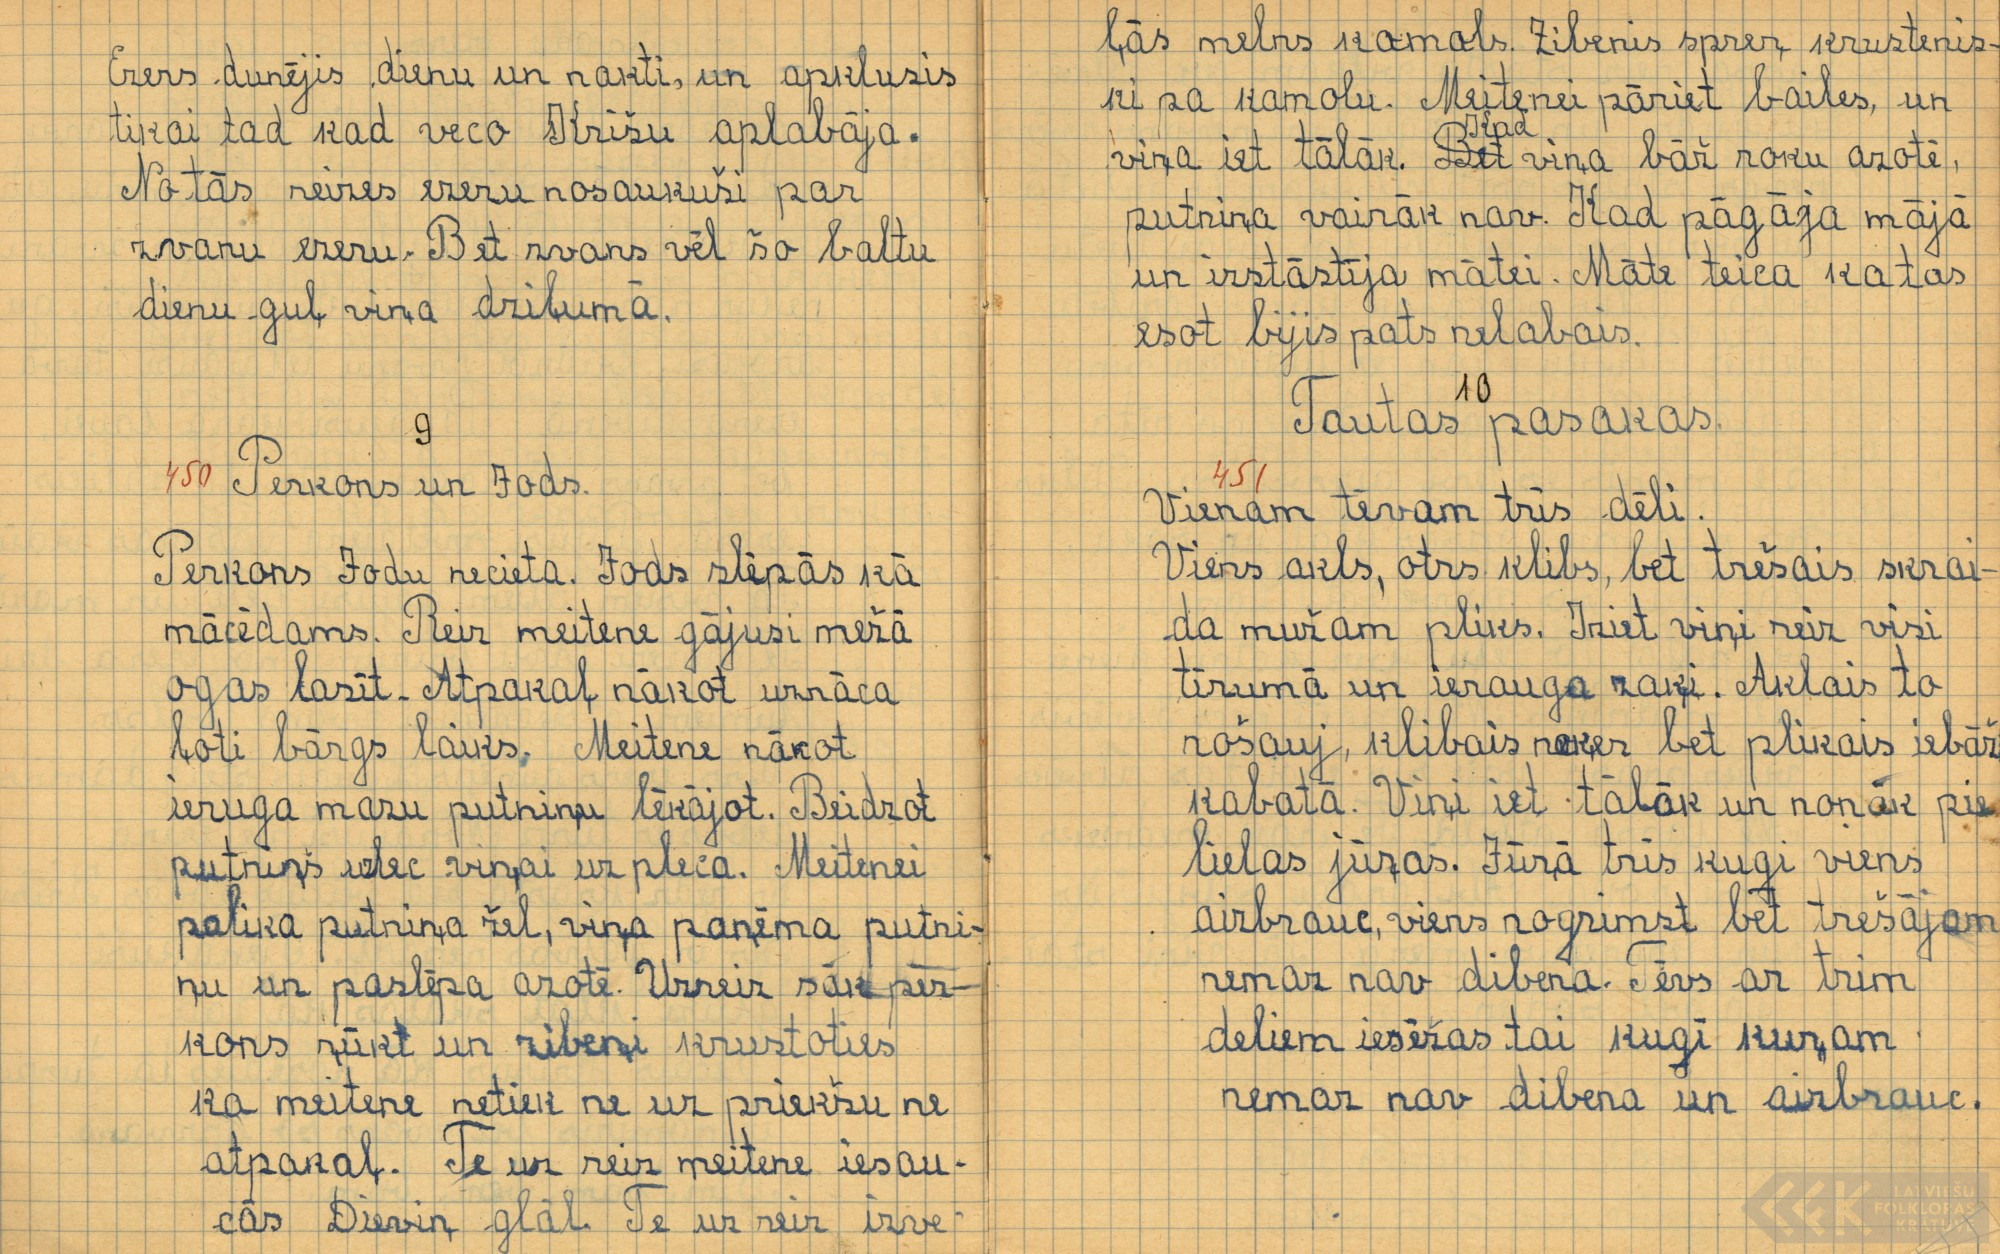 Ezers dunējis dienu un nakti, un apklusis
tikai tad kad veco Krišu aplabāja.
No tās reizes ezeru nosaukuši par
zvanu ezeru. Bet zvans vēl šo baltu
dienu guļ viņa dziļumā.
9
450 Perkons un Jods.
Perkons Jodu necieta. Jods slēpās kā
mācēdams. Reiz meitene gājusi mežā
ogas lasīt. Atpakaļ nākot uznāca
ļoti bārgs laiks. Meitene nākot
ieruga mazu putniņu lēkājot. Beidzot
putniņš uzlec viņai uz pleca. Meitenei
palika putniņa žēl, viņa paņēma putni-
ņu un paslēpa azotē. Uzreiz sāk pēr-
kons rūkt un zibeņi krustoties
ka meitene netiek ne uz priekšu ne
atpakaļ. Te uz reiz meitene iesau-
cās Dieviņ glāb. Te uz reiz izve-
ļās melns kamols. Zibenis sper krustenis-
ki pa kamolu. Meitenei pāriet bailes, un
Kad
viņa iet tālāk. Bet viņa bāž roku azotē,
putniņa vairāk nav. Kad pāgāja mājā
un izstāstīja mātei. Māte teica ka tas
esot bijis pats nelabais.
10
Tautas pasakas.
451
Vienam tēvam trīs dēli.
Viens akls, otrs klibs, bet trešais skrai-
da mužam pliks. Iziet viņi reiz visi
tīrumā un ierauga zaķi. Aklais to
nošauj, klibais noķer bet plikais iebāž
kabatā. Viņi iet tālāk un nonāk pie
lielas jūŗas. Jūŗā trīs kuģi viens
aizbrauc, viens nogrimst bet trešājam
nemaz nav dibena. Tēvs ar trim
deliem iesēžas tai kuģī kuŗam
nemaz nav dibena un aizbrauc.
LATVIEŠU
FOLKLORAS
KRĀTUVE